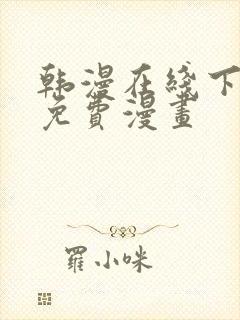 韩漫在线下
免費漫畫
羅小咪